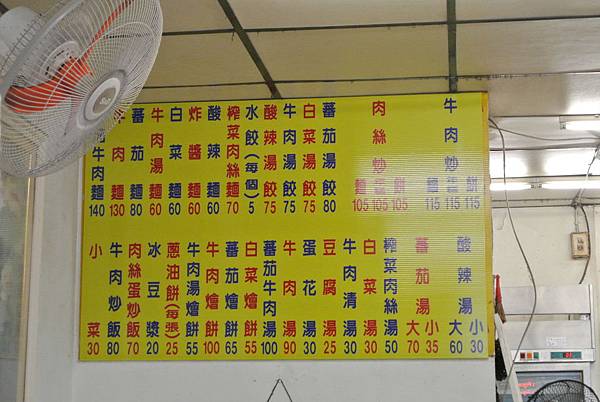 牛肉麵 140
肉麵 130
蕃茄麵 80
牛肉湯麵 60
白菜麵 60
炸醬麵 60
酸辣麵 60
榨菜肉絲麵 70
水餃(每個) 5
酸辣湯餃 75
牛肉湯餃 75
白菜湯餃 75
蕃茄湯餃 80
肉絲炒 麵 餅 105 105 105
牛肉炒 麵 餅 115 115 115
小菜 30
牛肉炒飯 80
肉絲蛋炒飯 70
冰豆漿 20
蔥油餅(每張) 25
牛肉湯燴餅 55
牛肉燴餅 100
蕃茄燴餅 65
白菜燴餅 55
蕃茄牛肉湯 100
牛肉湯 90
蛋花湯 30
豆腐湯 25
牛肉清湯 30
白菜湯 30
榨菜肉絲湯 50
蕃茄湯 大 70 小 35
酸辣湯 大 60 小 30